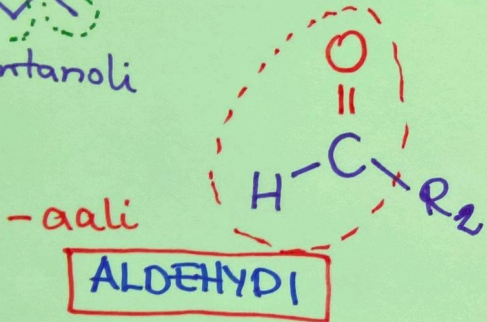 ntanoli
O
C
H
R2
-aali
ALDEHYDI